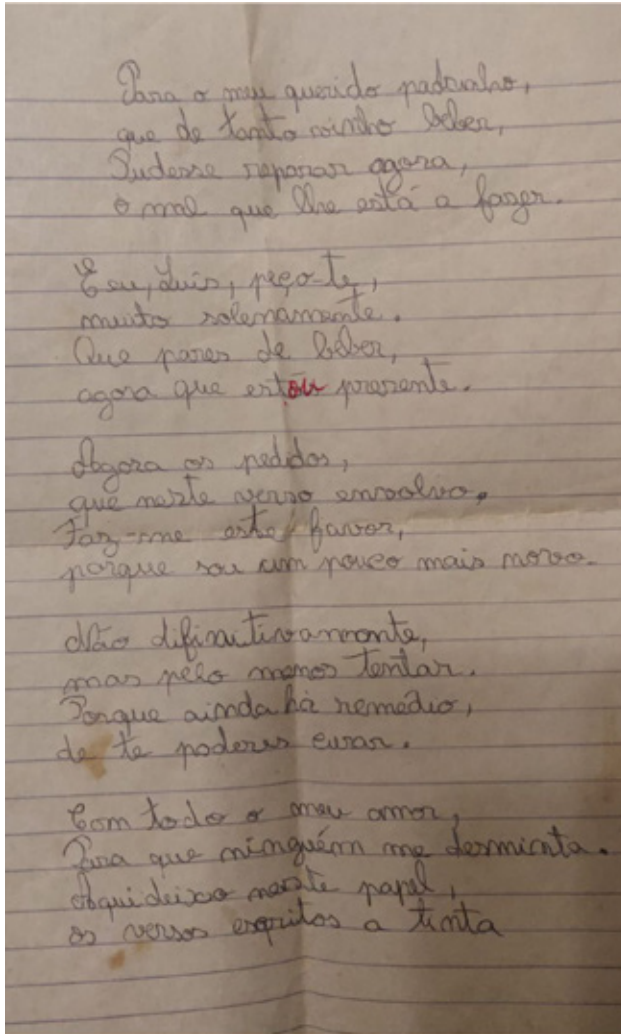 Para o meu querido padrinho,
que de tanto vinho beber,
Pudesse reparar agora,
o mal que lhe está a fazer.
Eeu, Luís, peço-te,
muito solenamente.
Que pares de beber,
agora que estou presente.
Agora os pedidos,
que neste verso envolvo,
Faz-me este favor,
porque sou um pouco mais novo.
Não difinitivamente,
mas pelo menos tentar.
Porque ainda há remédio,
de te poderes curar.
Com todo o meu amor,
Para que ninguém me desminta.
Aqui deixo neste papel,
os versos esqritos a tinta